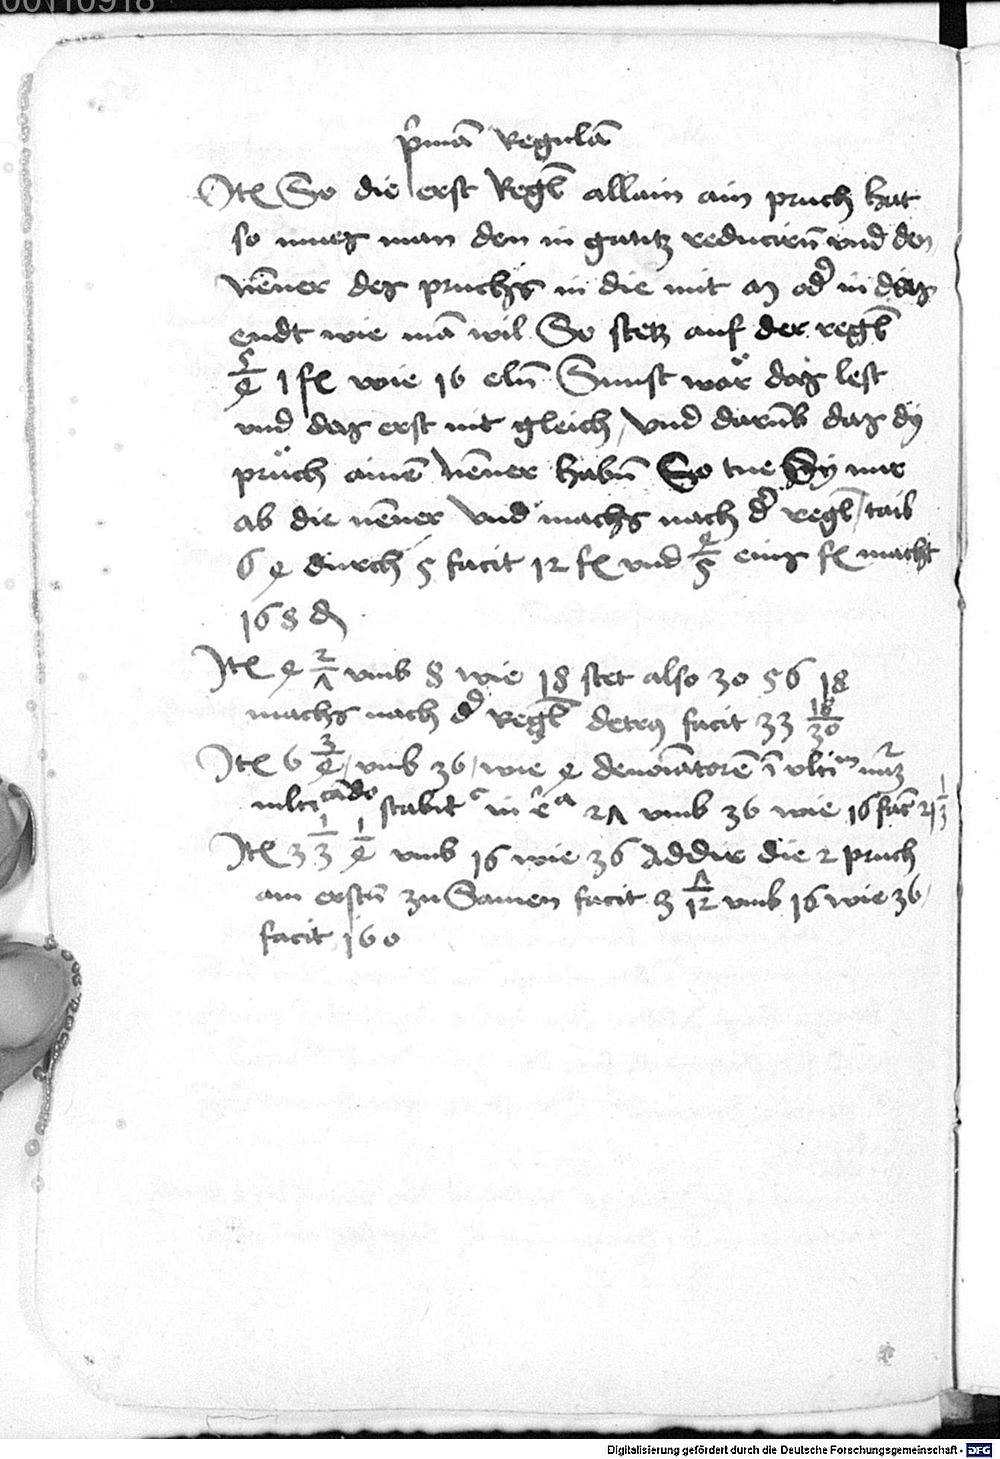 00110918
p̄mā Regulā
Itē So die erst Regl̄ allain ain pruch hat
so mues man den in gantz reducirn̄ vnd den
nēner des pruchss in die mit an od̄ in das
endt wie mā wil So setz auf der regl̄
5/4 1 fl wie 16 eln̄ Sunst wär das lest
vnd das erst nit gleich / vnd darūb das dy
prüch ainē nēner habn̄ So tue Dy nur
ab die nēner vnd machs nach d̄ regl̄ / tail
64 durch 5 facit 12 fl vnd 4/5 eins fl macht
168 d
Itē 4 2/7 vmb 8 wie 18 stet also 30 56 18
machs nach d̄ Regl̄ detry facit 33 18/30
Itē 6 3/4 / vmb 36 / wie 4 denoīatorē ī vltim
multicādo stabit in 27 vmb 36 wie 16 fac̄ 21 1/3
Itē 3 1/3 1/4 vmb 16 wie 36 Addir die 2 pruch
am erstn̄ zu Samen facit 3 7/12 vmb 16 wie 36 /
facit 160
Digitalisierung gefördert durch die Deutsche Forschungsgemeinschaft - DFG